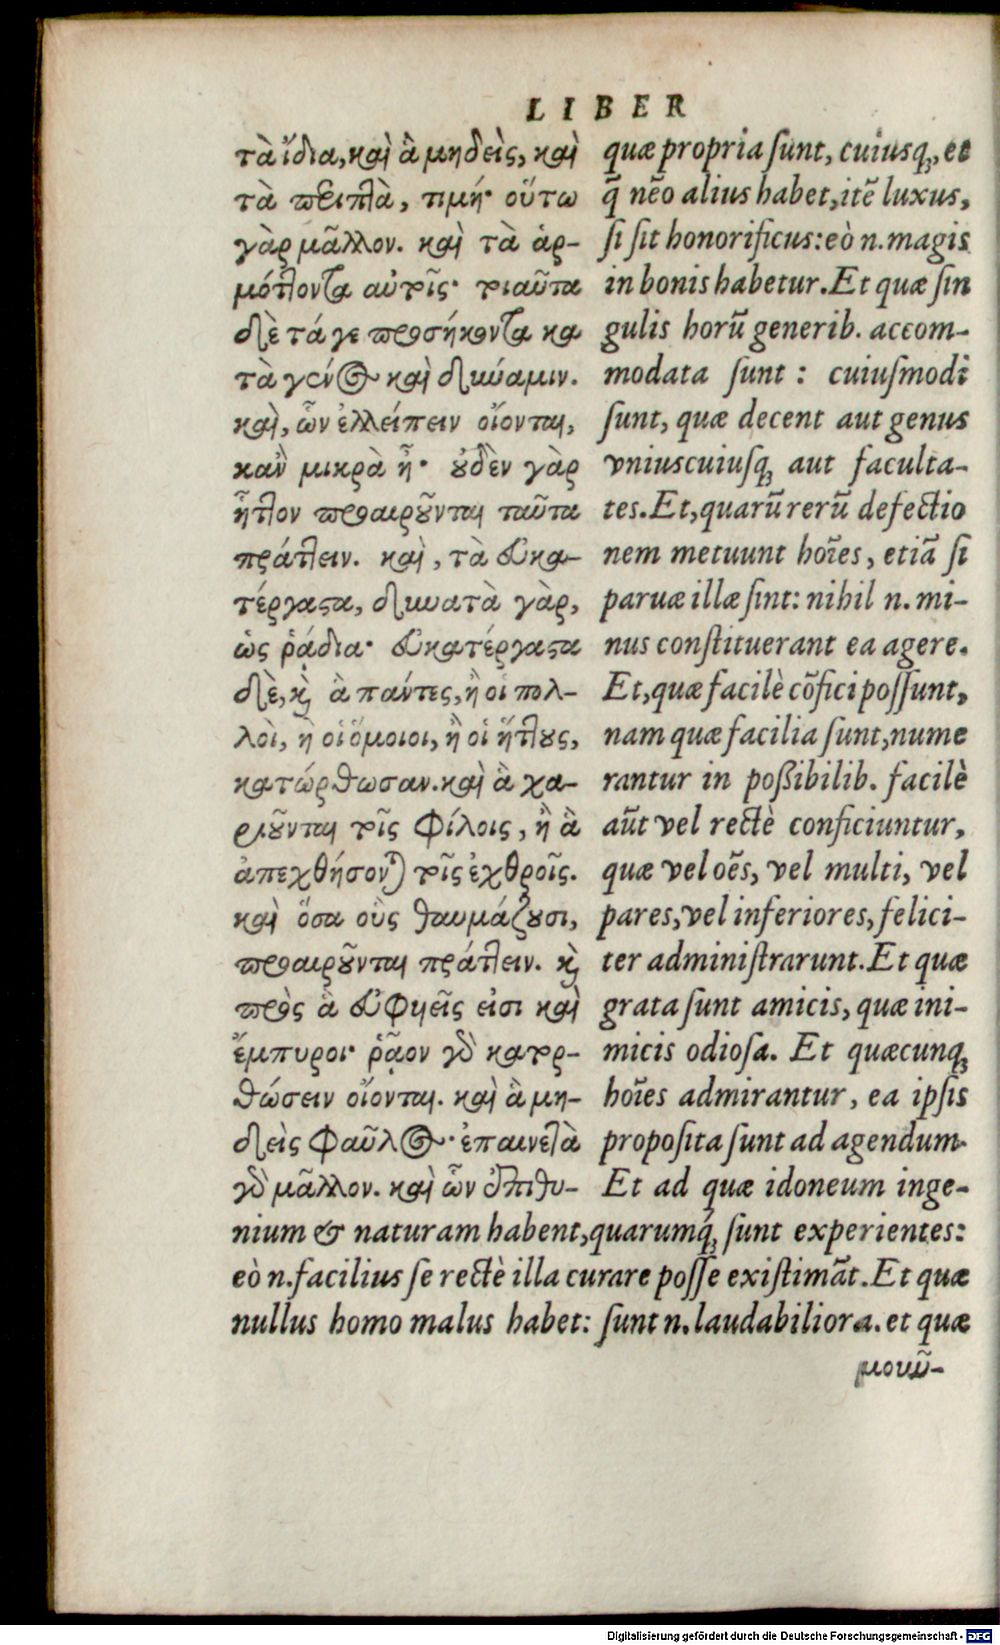 LIBER
τὰ ἴδια, καὶ ἃ μηδεὶς, καὶ
τὰ περιττὰ, τιμή· οὕτω
γὰρ μᾶλλον. καὶ τὰ ἁρ-
μόττοντα αὐτοῖς· τοιαῦτα
δὲ τά γε προσήκοντα κα
τὰ γένος καὶ δύναμιν.
καὶ, ὧν ἐλλείπειν οἴονται,
κἂν μικρὰ ᾖ· οὐδὲν γὰρ
ἧττον προαιροῦνται ταῦτα
πράττειν. καὶ, τὰ εὐκα-
τέργαστα, δυνατὰ γὰρ,
ὡς ῥάδια· εὐκατέργαστα
δὲ, καὶ ἃ πάντες, ἢ οἱ πολ-
λοὶ, ἢ οἱ ὅμοιοι, ἢ οἱ ἥττους,
κατώρθωσαν. καὶ ἃ χα-
ριοῦνται τοῖς φίλοις, ἢ ἃ
ἀπεχθήσονται τοῖς ἐχθροῖς.
καὶ ὅσα οὓς θαυμάζουσι,
προαιροῦνται πράττειν. καὶ
πρὸς ἃ εὐφυεῖς εἰσι καὶ
ἔμπυροι· ῥᾷον γὰρ κατορ-
θώσειν οἴονται. καὶ ἃ μη-
δεὶς φαῦλος· ἐπαινετὰ
γὰρ μᾶλλον. καὶ ὧν ἐπιθυ-
quæ propria sunt, cuiusq;, et
q̃ nẽo alius habet, itẽ luxus,
si sit honorificus: eò n. magis
in bonis habetur. Et quæ sin
gulis horũ generib. accom-
modata sunt: cuiusmodi
sunt, quæ decent aut genus
vniuscuiusq; aut faculta-
tes. Et, quarũ rerũ defectio
nem metuunt hoĩes, etiã si
paruæ illæ sint: nihil n. mi-
nus constituerant ea agere.
Et, quæ facilè cõfici possunt,
nam quæ facilia sunt, nume
rantur in poßibilib. facilè
aũt vel rectè conficiuntur,
quæ vel oẽs, vel multi, vel
pares, vel inferiores, felici-
ter administrarunt. Et quæ
grata sunt amicis, quæ ini-
micis odiosa. Et quæcunq;
hoĩes admirantur, ea ipsis
proposita sunt ad agendum.
Et ad quæ idoneum inge-
nium & naturam habent, quarumq́; sunt experientes:
eò n. facilius se rectè illa curare posse existimãt. Et quæ
nullus homo malus habet: sunt n. laudabiliora. et quæ
μουῦ-
Digitalisierung gefördert durch die Deutsche Forschungsgemeinschaft - DFG